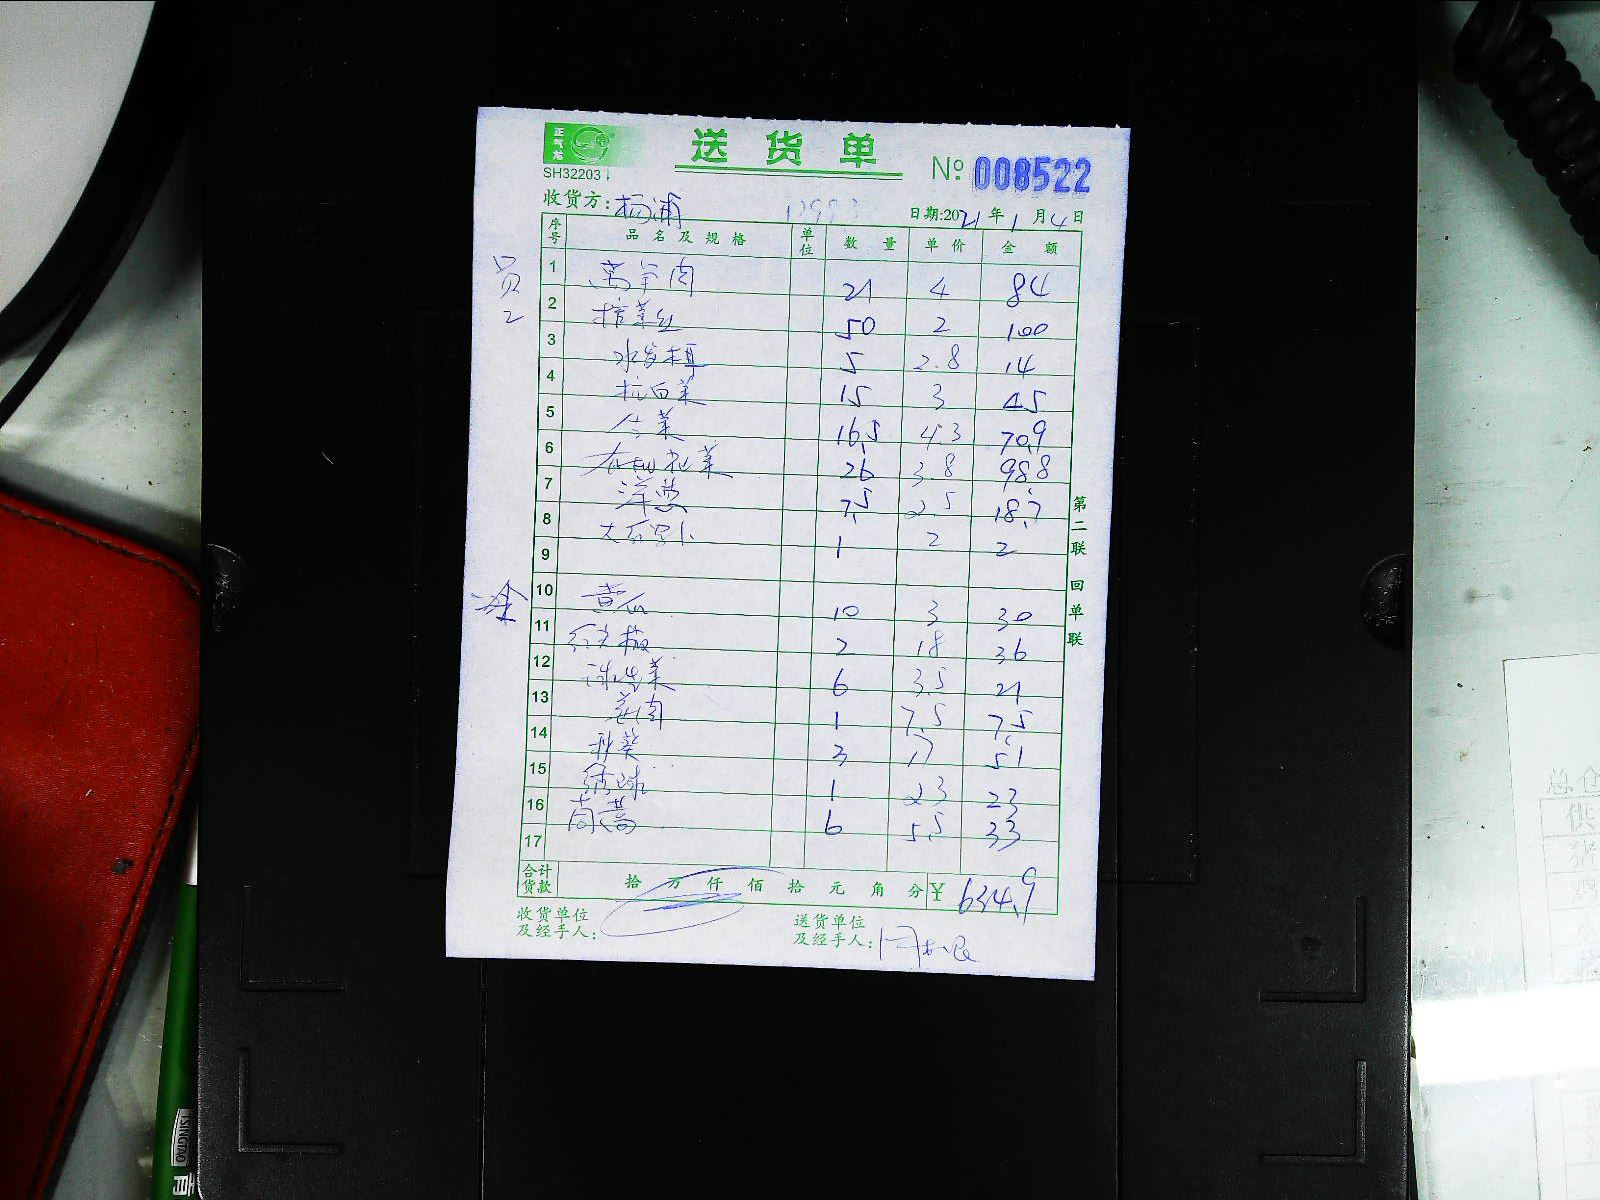 正气龙
送货单
SH32203
№ 008522
收货方：杨浦
日期:2021年1月4日
序号 品名及规格 单位 数量 单价 金额
员2
1 莴笋肉 21 4 84
2 榨菜丝 50 2 100
3 水发木耳 5 2.8 14
4 杭白菜 15 3 45
5 16.5 4.3 70.9
6 26 3.8 98.8
7 洋葱 7.5 2.5 18.7
8 1 2 2
9
冷
10 黄瓜 10 3 30
11 红尖椒 2 18 36
12 球生菜 6 3.5 21
13 姜肉 1 7.5 7.5
14 秋葵 3 17 51
15 1 23 23
16 茼蒿 6 5.5 33
17
合计货款 拾 万 仟 佰 拾 元 角 分 ¥ 634.9
收货单位及经手人：
送货单位及经手人：
第二联 回单联
总仓
供
TSINGTAO
青